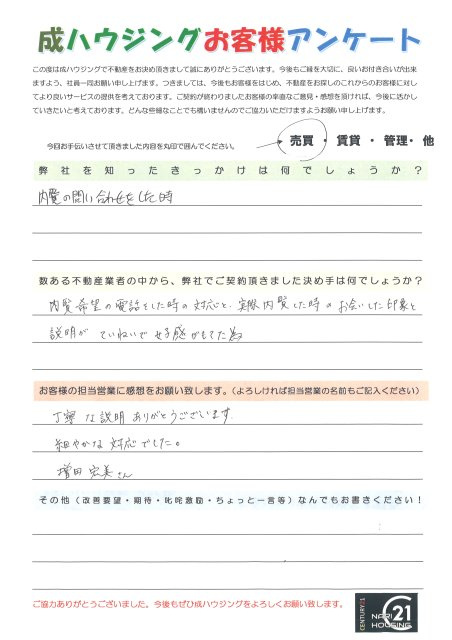 成ハウジングお客様アンケート
この度は成ハウジングで不動産をお決め頂きまして誠にありがとうございます。今後もご縁を大切に、良いお付き合いが出来
ますよう、社員一同お願い申し上げます。つきましては、今後もお客様をはじめ、不動産をお探しのこれからのお客様に対し
てより良いサービスの提供を考えております。ご契約が終わりましたお客様の率直なご意見・感想を頂ければ、今後に活かし
ていきたいと考えております。どんな些細なことでも構いませんのでご協力いただけますようお願い申し上げます。
今回お手伝いさせて頂きました内容を丸印で囲んでください。
売買・賃貸・管理・他
弊社を知ったきっかけは何でしょうか？
内覧の問い合わせをした時
数ある不動産業者の中から、弊社でご契約頂きました決め手は何でしょうか？
内覧希望の電話をした時の対応と、実際内覧した時のお会いした印象と
説明がていねいで 感がもてた為
お客様の担当営業に感想をお願い致します。（よろしければ担当営業の名前もご記入ください）
丁寧な説明ありがとうございます。
細やかな対応でした。
増田宏美さん
その他（改善要望・期待・叱咤激励・ちょっと一言等）なんでもお書きください！
ご協力ありがとうございました。今後もぜひ成ハウジングをよろしくお願い致します。
CENTURY 21
NARI
HOUSING